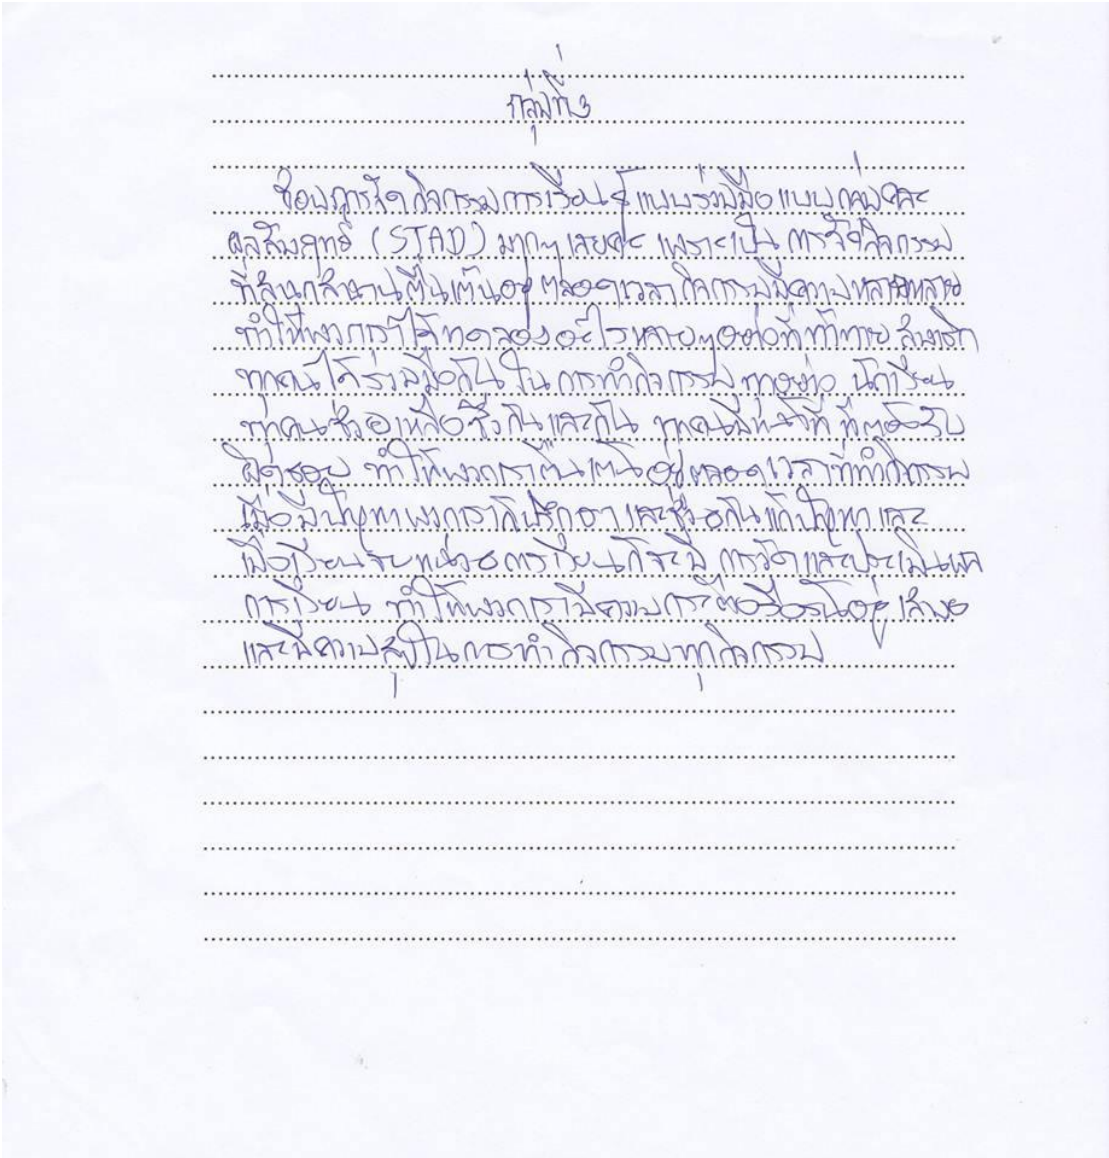 กลุ่มที่3
ชอบการจัดกิจกรรมการเรียนรู้แบบร่วมมือ แบบกลุ่มคละ
ผลสัมฤทธิ์ (STAD) มากๆ เลยค่ะ เพราะเป็น การจัดกิจกรรม
ที่สนุกสนานตื่นเต้นอยู่ ตลอดเวลา กิจกรรมมีความหลากหลาย
ทำให้พวกเราได้ทดลองอะไรหลายๆอย่างที่ท้าทาย สมาชิก
ทุกคนได้ร่วมมือกัน ใน การทำกิจกรรม ทุกอย่าง นักเรียน
ทุกคน ช่วยเหลือซึ่งกันและกัน ทุกคนมีหน้าที่ ที่ต้องรับ
ผิดชอบ ทำให้พวกเราตื่นเต้นอยู่ตลอดเวลาที่ทำกิจกรรม
เมื่อมีปัญหาพวกเราก็ปรึกษา และช่วยกันแก้ปัญหา และ
เมื่อเรียนจบหน่วยการเรียนก็จะมี การวัดและประเมินผล
การเรียน ทำให้พวกเรามีความกระตือรือร้นอยู่ เสมอ
และมีความสุขในการทำกิจกรรมทุกกิจกรรม